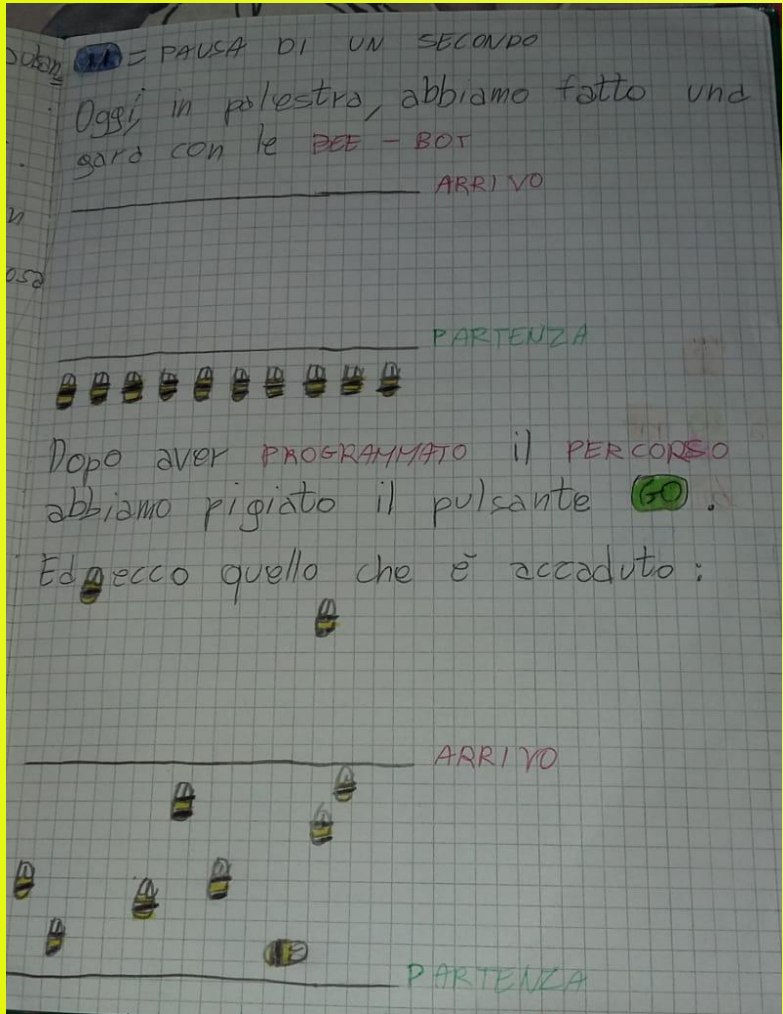 II = PAUSA DI UN SECONDO
Oggi, in palestra, abbiamo fatto una
gara con le BEE - BOT
ARRIVO
PARTENZA
Dopo aver PROGRAMMATO il PERCORSO
abbiamo pigiato il pulsante GO.
Ed ecco quello che è accaduto:
ARRIVO
PARTENZA